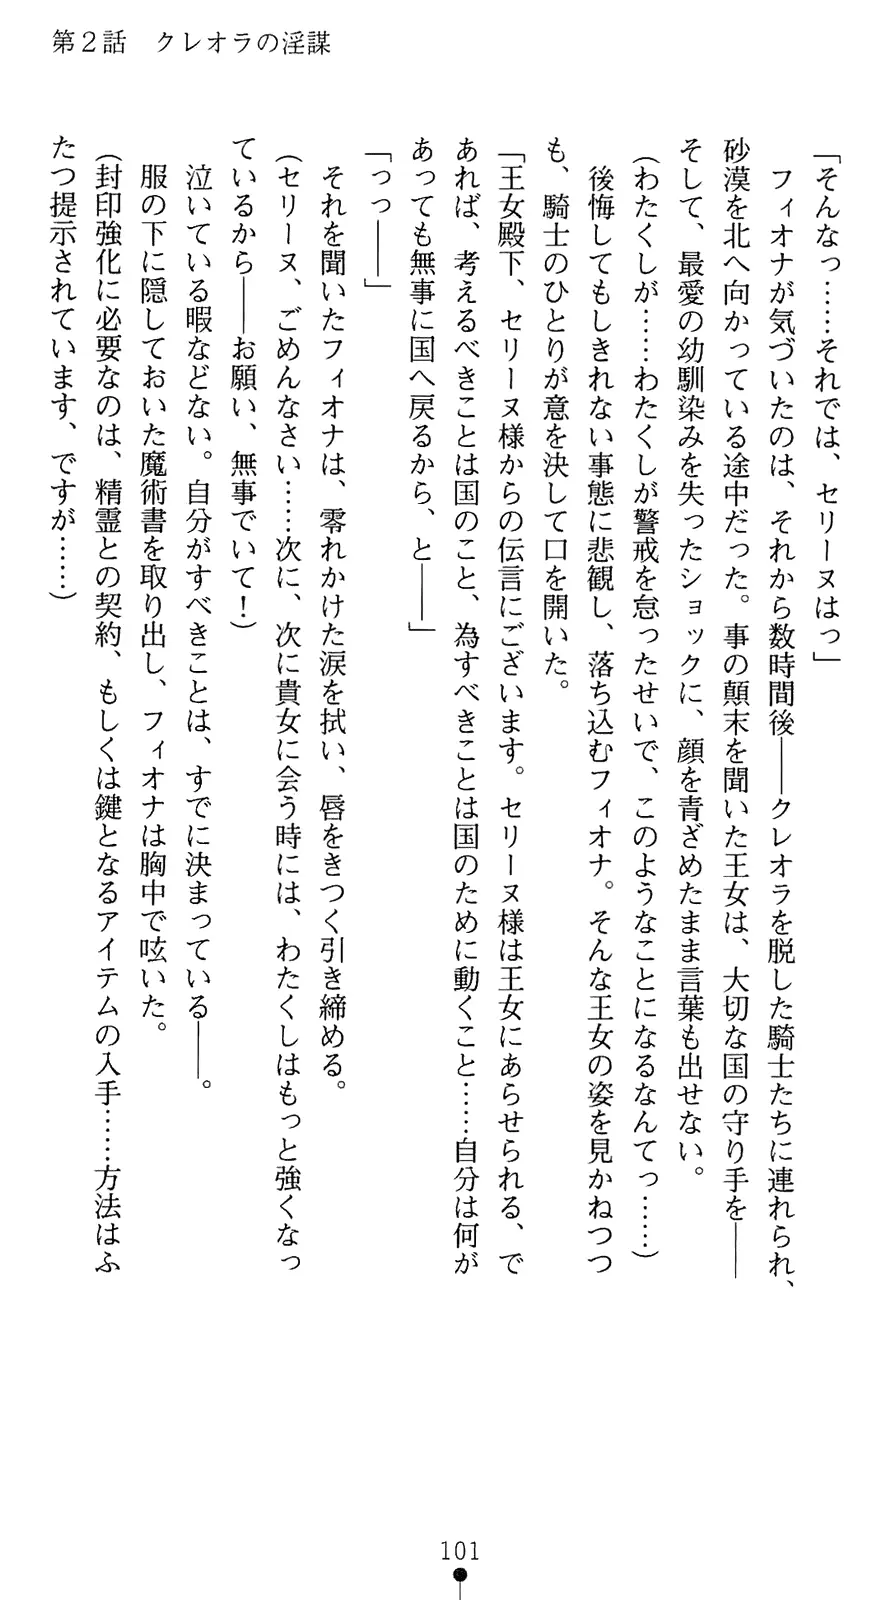 第２話　クレオラの淫謀
「そんなっ……それでは、セリーヌはっ」
フィオナが気づいたのは、それから数時間後――クレオラを脱した騎士たちに連れられ、
砂漠を北へ向かっている途中だった。事の顛末を聞いた王女は、大切な国の守り手を――
そして、最愛の幼馴染みを失ったショックに、顔を青ざめたまま言葉も出せない。
（わたくしが……わたくしが警戒を怠ったせいで、このようなことになるなんてっ……）
後悔してもしきれない事態に悲観し、落ち込むフィオナ。そんな王女の姿を見かねつつ
も、騎士のひとりが意を決して口を開いた。
「王女殿下、セリーヌ様からの伝言にございます。セリーヌ様は王女にあらせられる、で
あれば、考えるべきことは国のこと、為すべきことは国のために動くこと……自分は何が
あっても無事に国へ戻るから、と――」
「っっ――」
それを聞いたフィオナは、零れかけた涙を拭い、唇をきつく引き締める。
（セリーヌ、ごめんなさい……次に、次に貴女に会う時には、わたくしはもっと強くなっ
ているから――お願い、無事でいて！）
泣いている暇などない。自分がすべきことは、すでに決まっている――。
服の下に隠しておいた魔術書を取り出し、フィオナは胸中で呟いた。
（封印強化に必要なのは、精霊との契約、もしくは鍵となるアイテムの入手……方法はふ
たつ提示されています、ですが……）
101